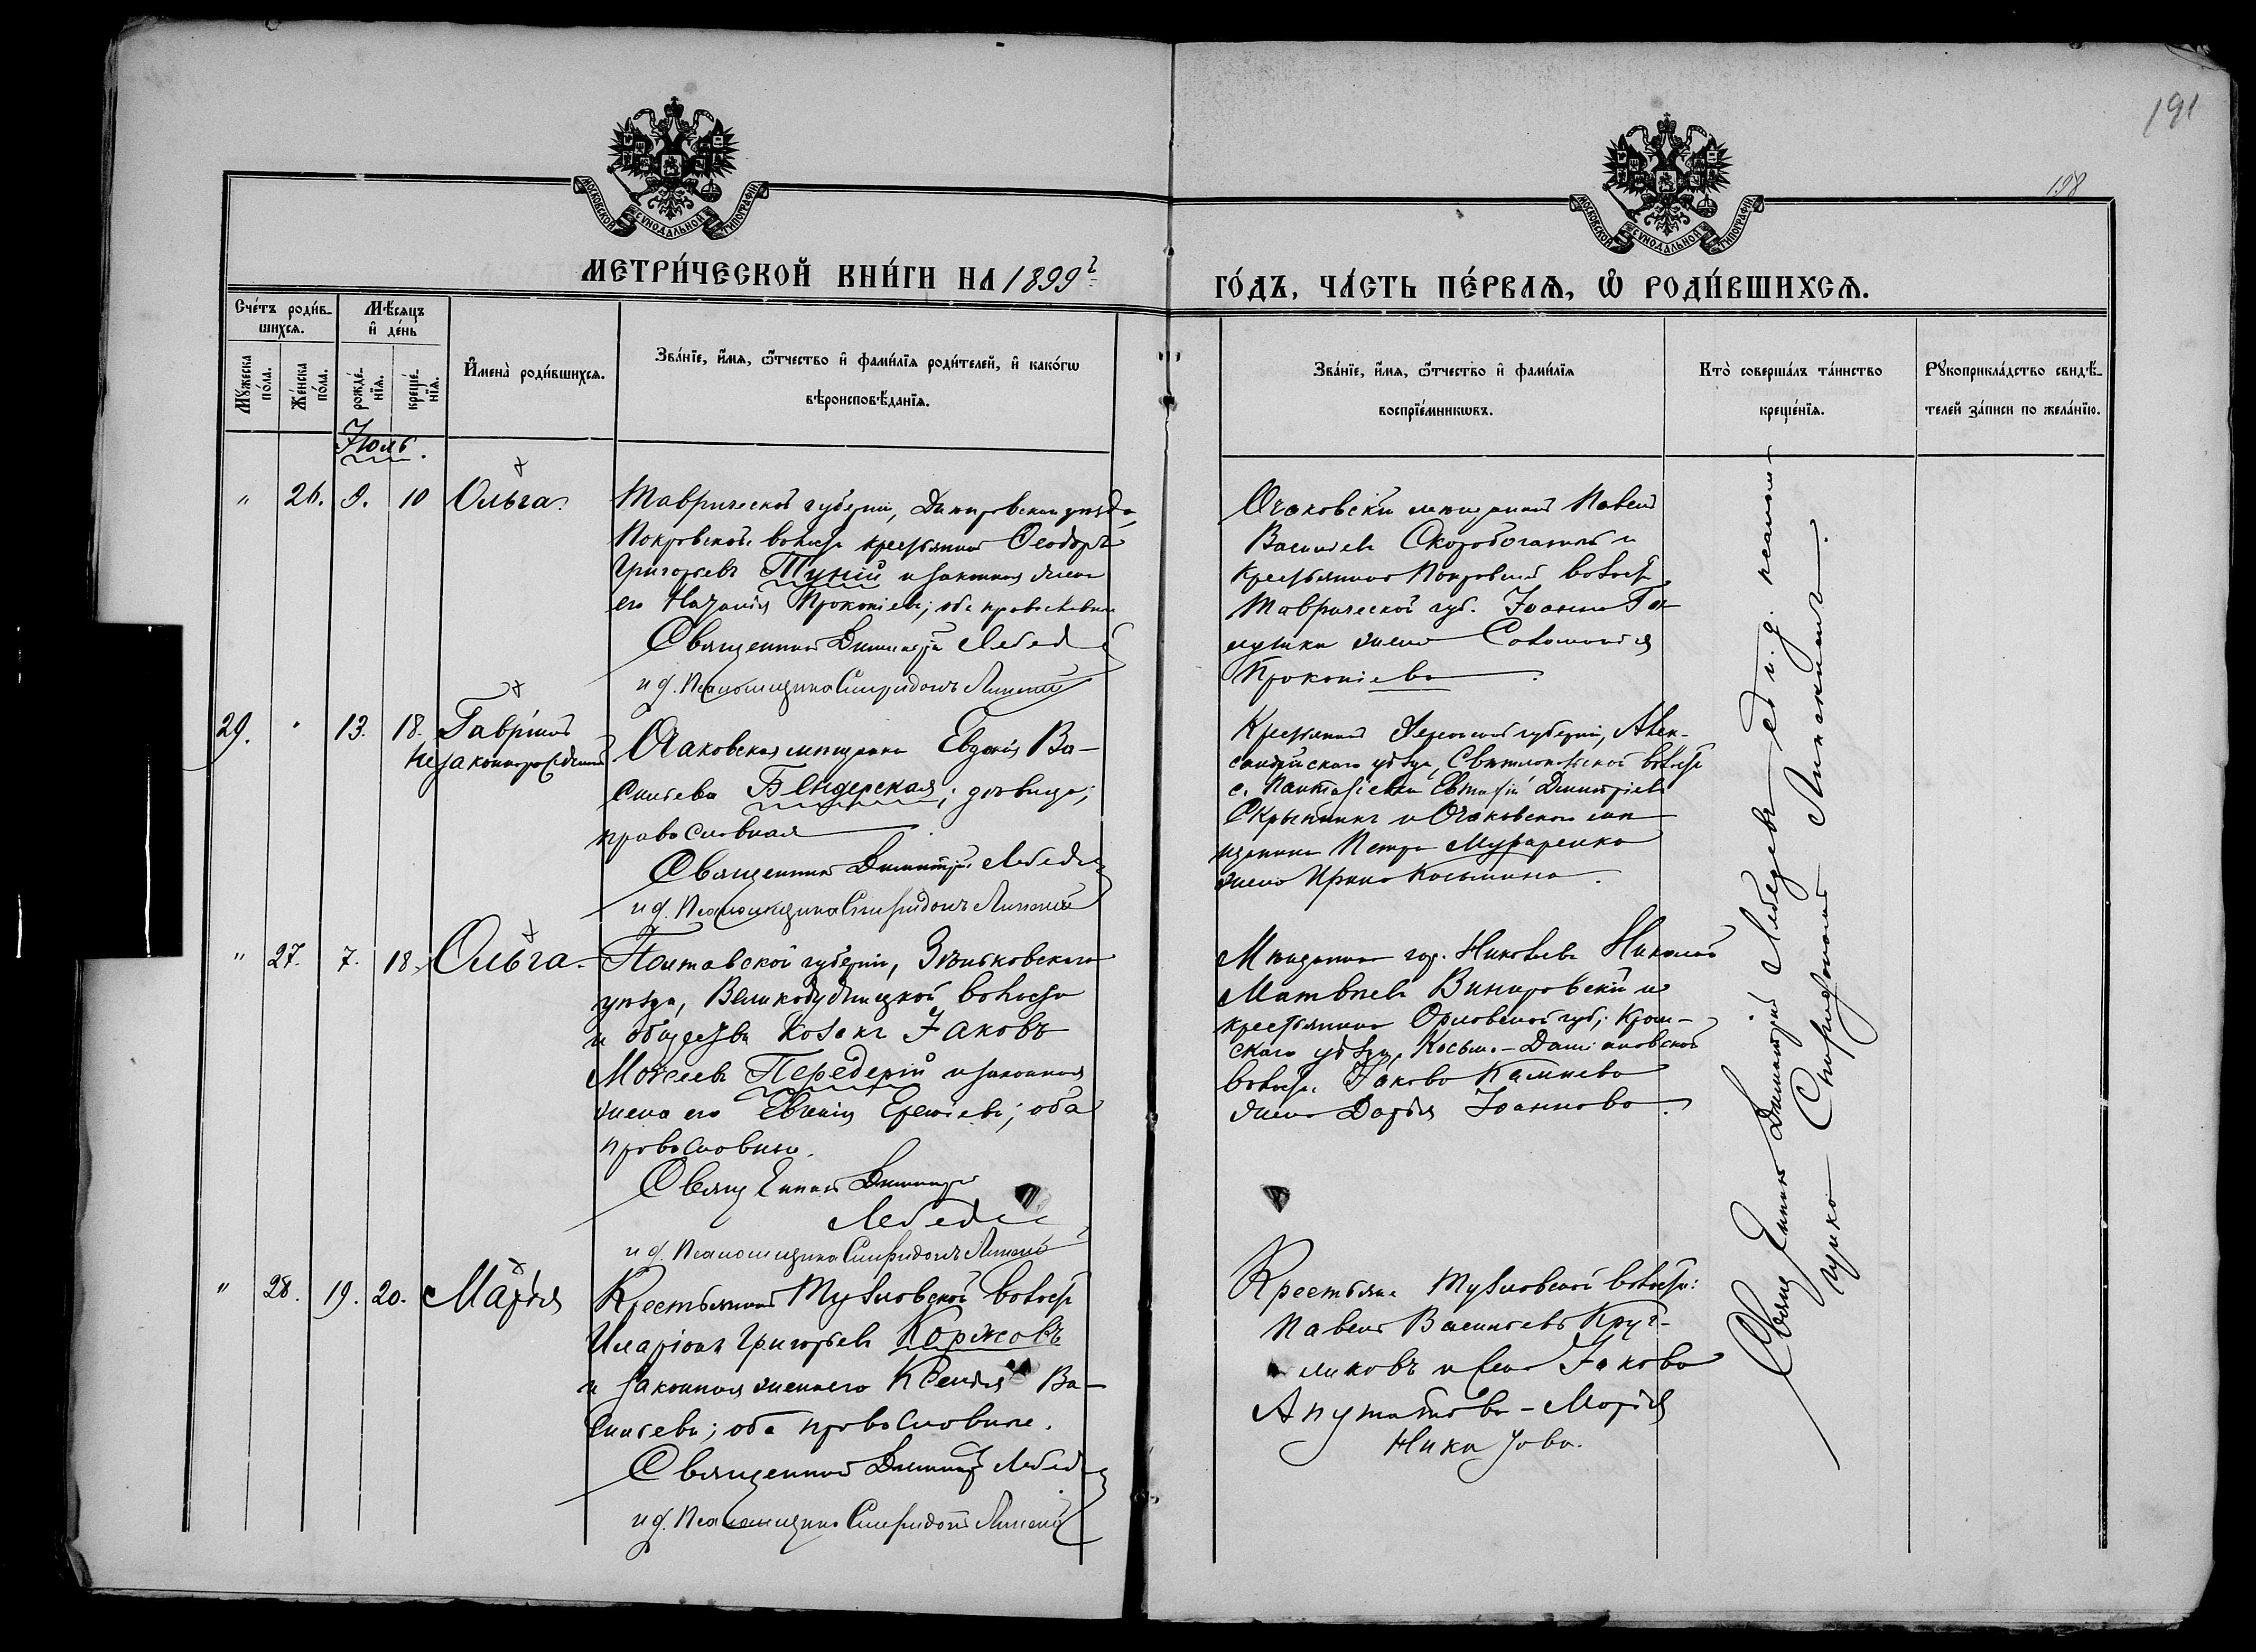 191
198
МОСКОВСКОЙ СУНОДАЛЬНОЙ ТИПОГРАФІИ
МОСКОВСКОЙ СУНОДАЛЬНОЙ ТИПОГРАФІИ
МЕТРИ́ЧЕСКОЙ КНИ́ГИ НА 1899 г
ГО́ДЪ, ЧА́СТЬ ПЕ́РВАѦ, Ѡ҆ РОДИ́ВШИХСѦ.
Сче́тъ роди́в-
шихсѧ.
Мꙋ́жеска
по́ла.
Же́нска
по́ла.
Мѣ́сѧцъ
и҆ де́нь
рожде́-
нїѧ.
креще́-
нїѧ.
И҆мена̀ роди́вшихсѧ.
Зва́нїе, и҆́мѧ, ѻ҆́тчество и҆ фами́лїѧ роди́телей, и҆ како́гѡ
вѣроисповѣ́данїѧ.
Зва́нїе, и҆́мѧ, ѻ҆́тчество и҆ фами́лїѧ
воспрїе́мникѡвъ.
Кто̀ соверша́лъ та́инство
креще́нїѧ.
Рꙋкоприкла́дство свидѣ́-
телей за́писи по жела́нїю.
Іюль.
" 26. 9. 10 Ольга.
Таврической губерніи, Днепровскаго уѣзда,
Покровской волости крестьянинъ Ѳеодоръ
Григорьевъ Тупій и законная жена
его Наталія Прокопіева; оба православные
Священникъ Димитрій Лебедевъ
и д. Псаломщика Спиридонъ
Очаковскій мещанинъ Павелъ
Васильевъ Скоробогатый и
крестьянина Покровской волости
Таврической губ. Іоанна Га-
лушки жена Соломонія
Прокопіева
29. " 13. 18. Гавріилъ
незаконнорожденный
Очаковская мещанка Евдокія Ва-
сильева Бендерская; девица;
православная
Священникъ Димитрій Лебедевъ
и д. Псаломщика Спиридонъ
Крестьянинъ Херсонской губерніи, Алек-
сандрійскаго уѣзда, волости
с. Евтихій Димитріевъ
Скрыпникъ и Очаковского ме-
щанина Петра
жена Ирина Косьмина.
" 27. 7. 18. Ольга.
Полтавской губерніи, Зѣньковскаго
уѣзда, Великобудищской волости
и общества козакъ Іаковъ
Моѵсеевъ Передерій и законная
жена его Евгенія; оба
православные.
Священникъ Димитрій
Лебедевъ
и д. Псаломщика Спиридонъ
Мѣщанинъ гор. Николаева Николай
Матвѣевъ и
крестьянина Орловской губ., Кром-
скаго уѣзда, Косьмо-Даміановской
волости Іакова Камнева
жена Дарья Іоаннова.
" 28. 19. 20. Марія
Крестьянинъ Тузловской волости
Иларіонъ Григорьевъ Коржовъ
и законная жена его Ксенія Ва-
сильева; оба православные.
Священникъ Димитрій Лебедевъ
и д. Псаломщика Спиридонъ
Крестьяне Тузловской волости:
Павелъ Васильевъ Круг-
ликовъ и жена Іакова
- Марія
Никитова.
Священникъ Димитрій Лебедевъ съ и. д. псалом-
щика Спиридономъ